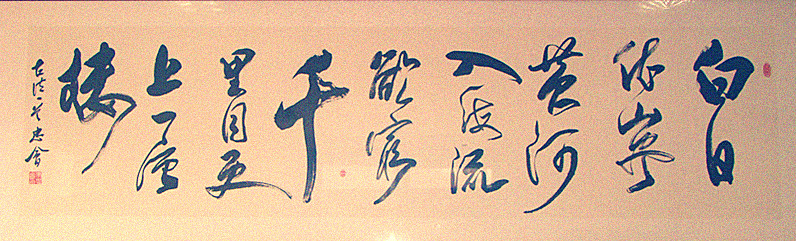 白日
依山尽
黄河
入海流
欲窮
千
里目更
上一層
楼